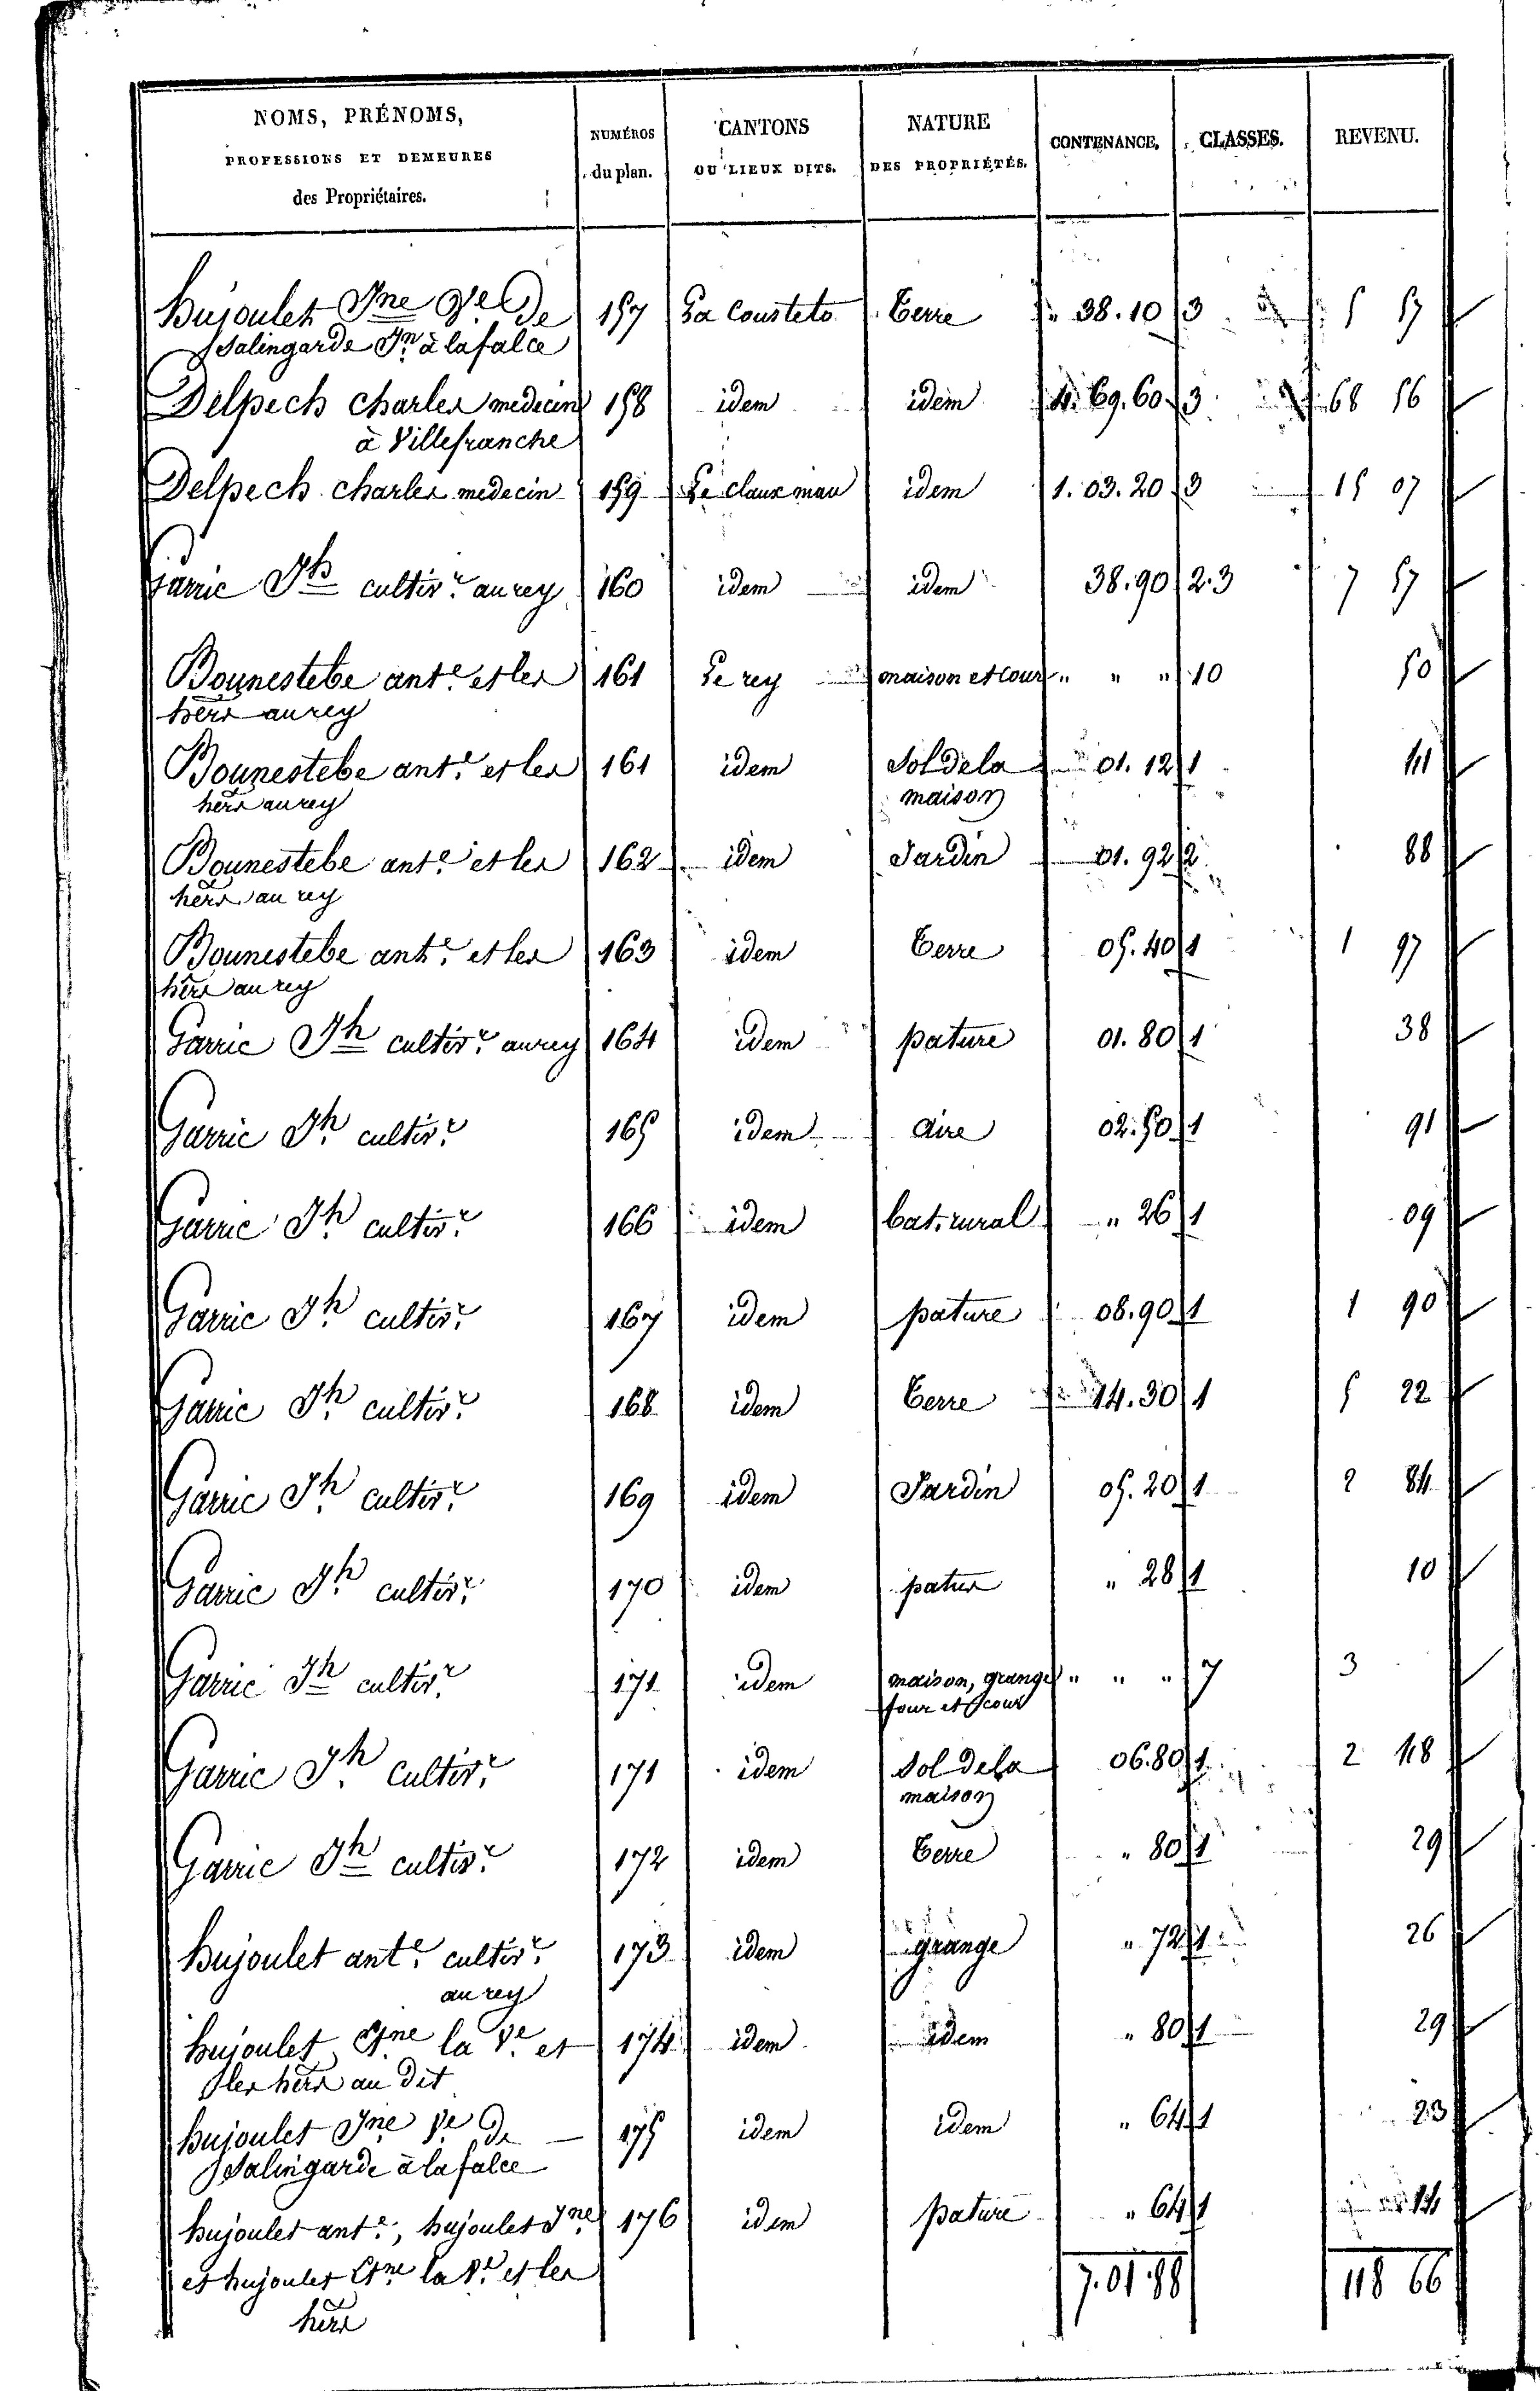 NOMS, PRÉNOMS, PROFESSIONS ET DEMEURES des Propriétaires. NUMÉROS du plan. CANTONS OU LIEUX DITS. NATURE DES PROPRIÉTÉS. CONTENANCE. CLASSES. REVENU.
hujoulet Jne Ve De 157 La Cousteto Terre " 38.10 3 5 57
Salingarde Jn à lafalce
Delpech Charles medecin 158 idem idem 4. 69. 60 3 68 56
à Villefranche
Delpech charles medecin 159 Le claux mau idem 1. 03. 20 3 15 07
Garric Jh cultivr au rey 160 idem idem 38.90 2.3 7 57
Bounestebe ante et les 161 Le rey maison et cour " " " 10 50
hers au rey
Bounestebe ante et les 161 idem Sol dela 01. 12 1 41
hers au rey maison
Bounestebe ante et les 162 idem Jardin 01. 92 2 88
hers au rey
Bounestebe ante et les 163 idem Terre 05. 40 1 1 97
hers au rey
Garric Jh cultivr au rey 164 idem pature 01. 80 1 38
Garric Jh cultivr 165 idem aire 02. 50 1 91
Garric Jh cultivr 166 idem bat. rural " 26 1 09
Garric Jh cultivr 167 idem pature 08. 90 1 1 90
Garric Jh cultivr 168 idem Terre 14. 30 1 5 22
Garric Jh cultivr 169 idem Jardin 05. 20 1 2 84
Garric Jh cultivr 170 idem patus " 28 1 10
Garric Jh cultivr 171 idem maison, grange " " " 7 3
four et cour
Garric Jh cultivr 171 idem Sol dela 06. 80 1 2 48
maison
Garric Jh cultivr 172 idem Terre " 80 1 29
hujoulet ante cultivr 173 idem grange " 72 1 26
au rey
hujoulet Etne la Ve et 174 idem idem " 80 1 29
les hers au dit
hujoulet Jne Ve De 175 idem idem " 64 1 23
Salingarde à la falce
hujoulet ante, hujoulet Jne 176 idem pature " 64 1 14
et hujoulet Etne la Ve et les 7. 01. 88 118 66
hers